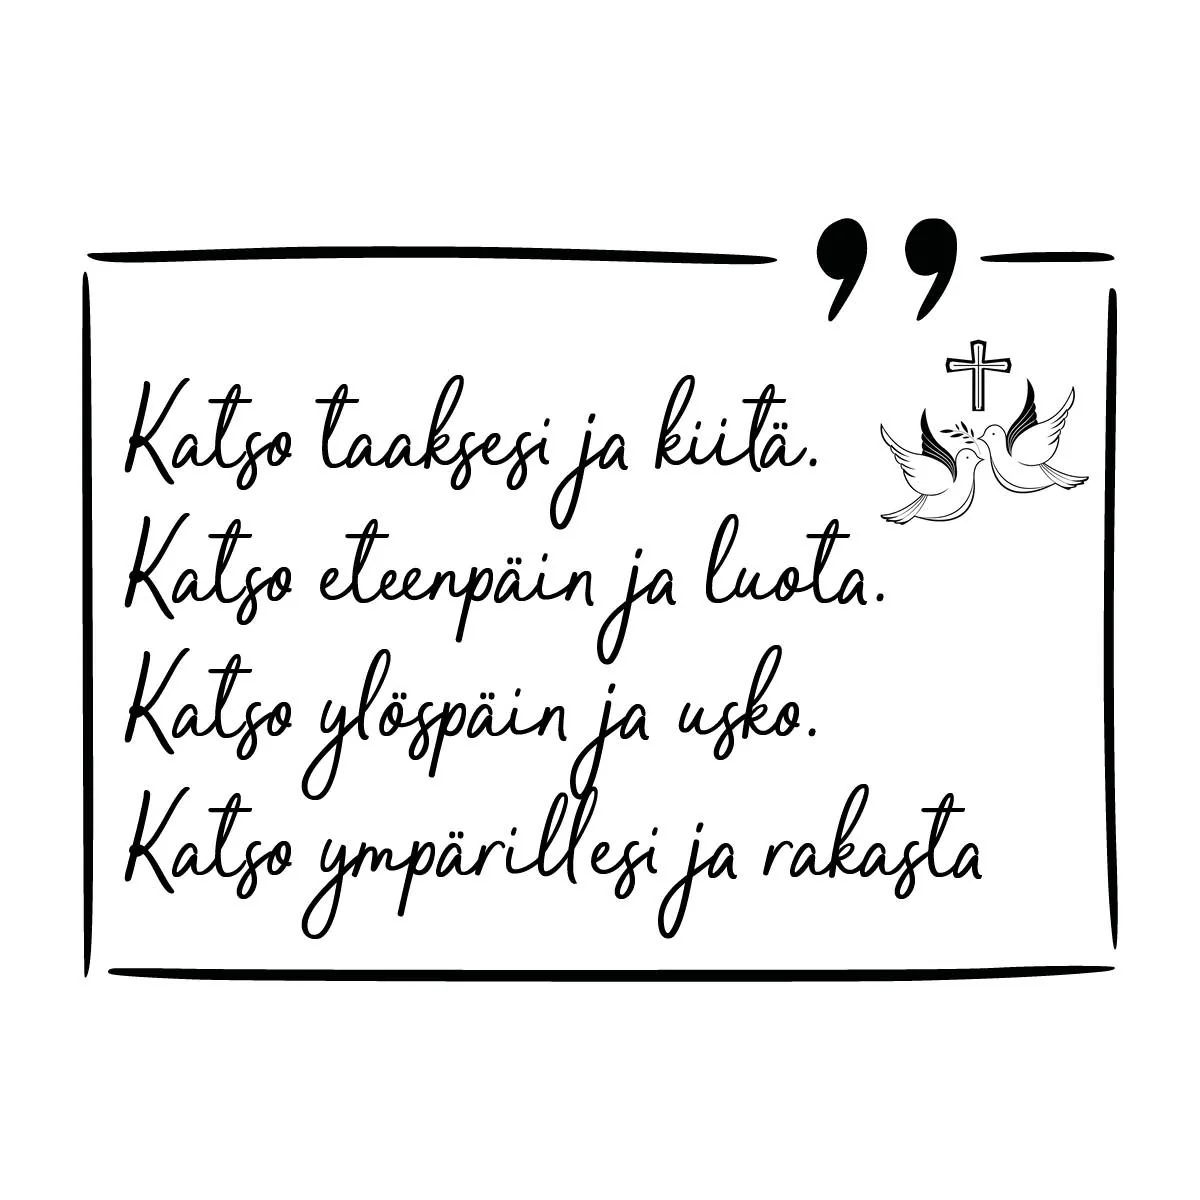 Katso taaksesi ja kiitä.
Katso eteenpäin ja luota.
Katso ylöspäin ja usko.
Katso ympärillesi ja rakasta